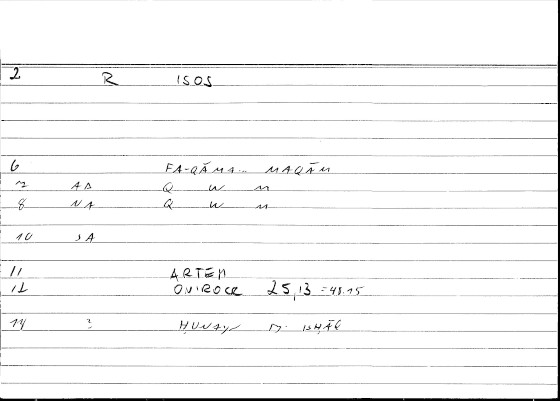 2 R ISOS
6 FA-QĀMA... MAQĀM
7 AD Q W M
8 NA Q W M
10 SA
11 ARTEM
12 ONIROCR 25,13 = 48.15
14 ? ḤUNAYN